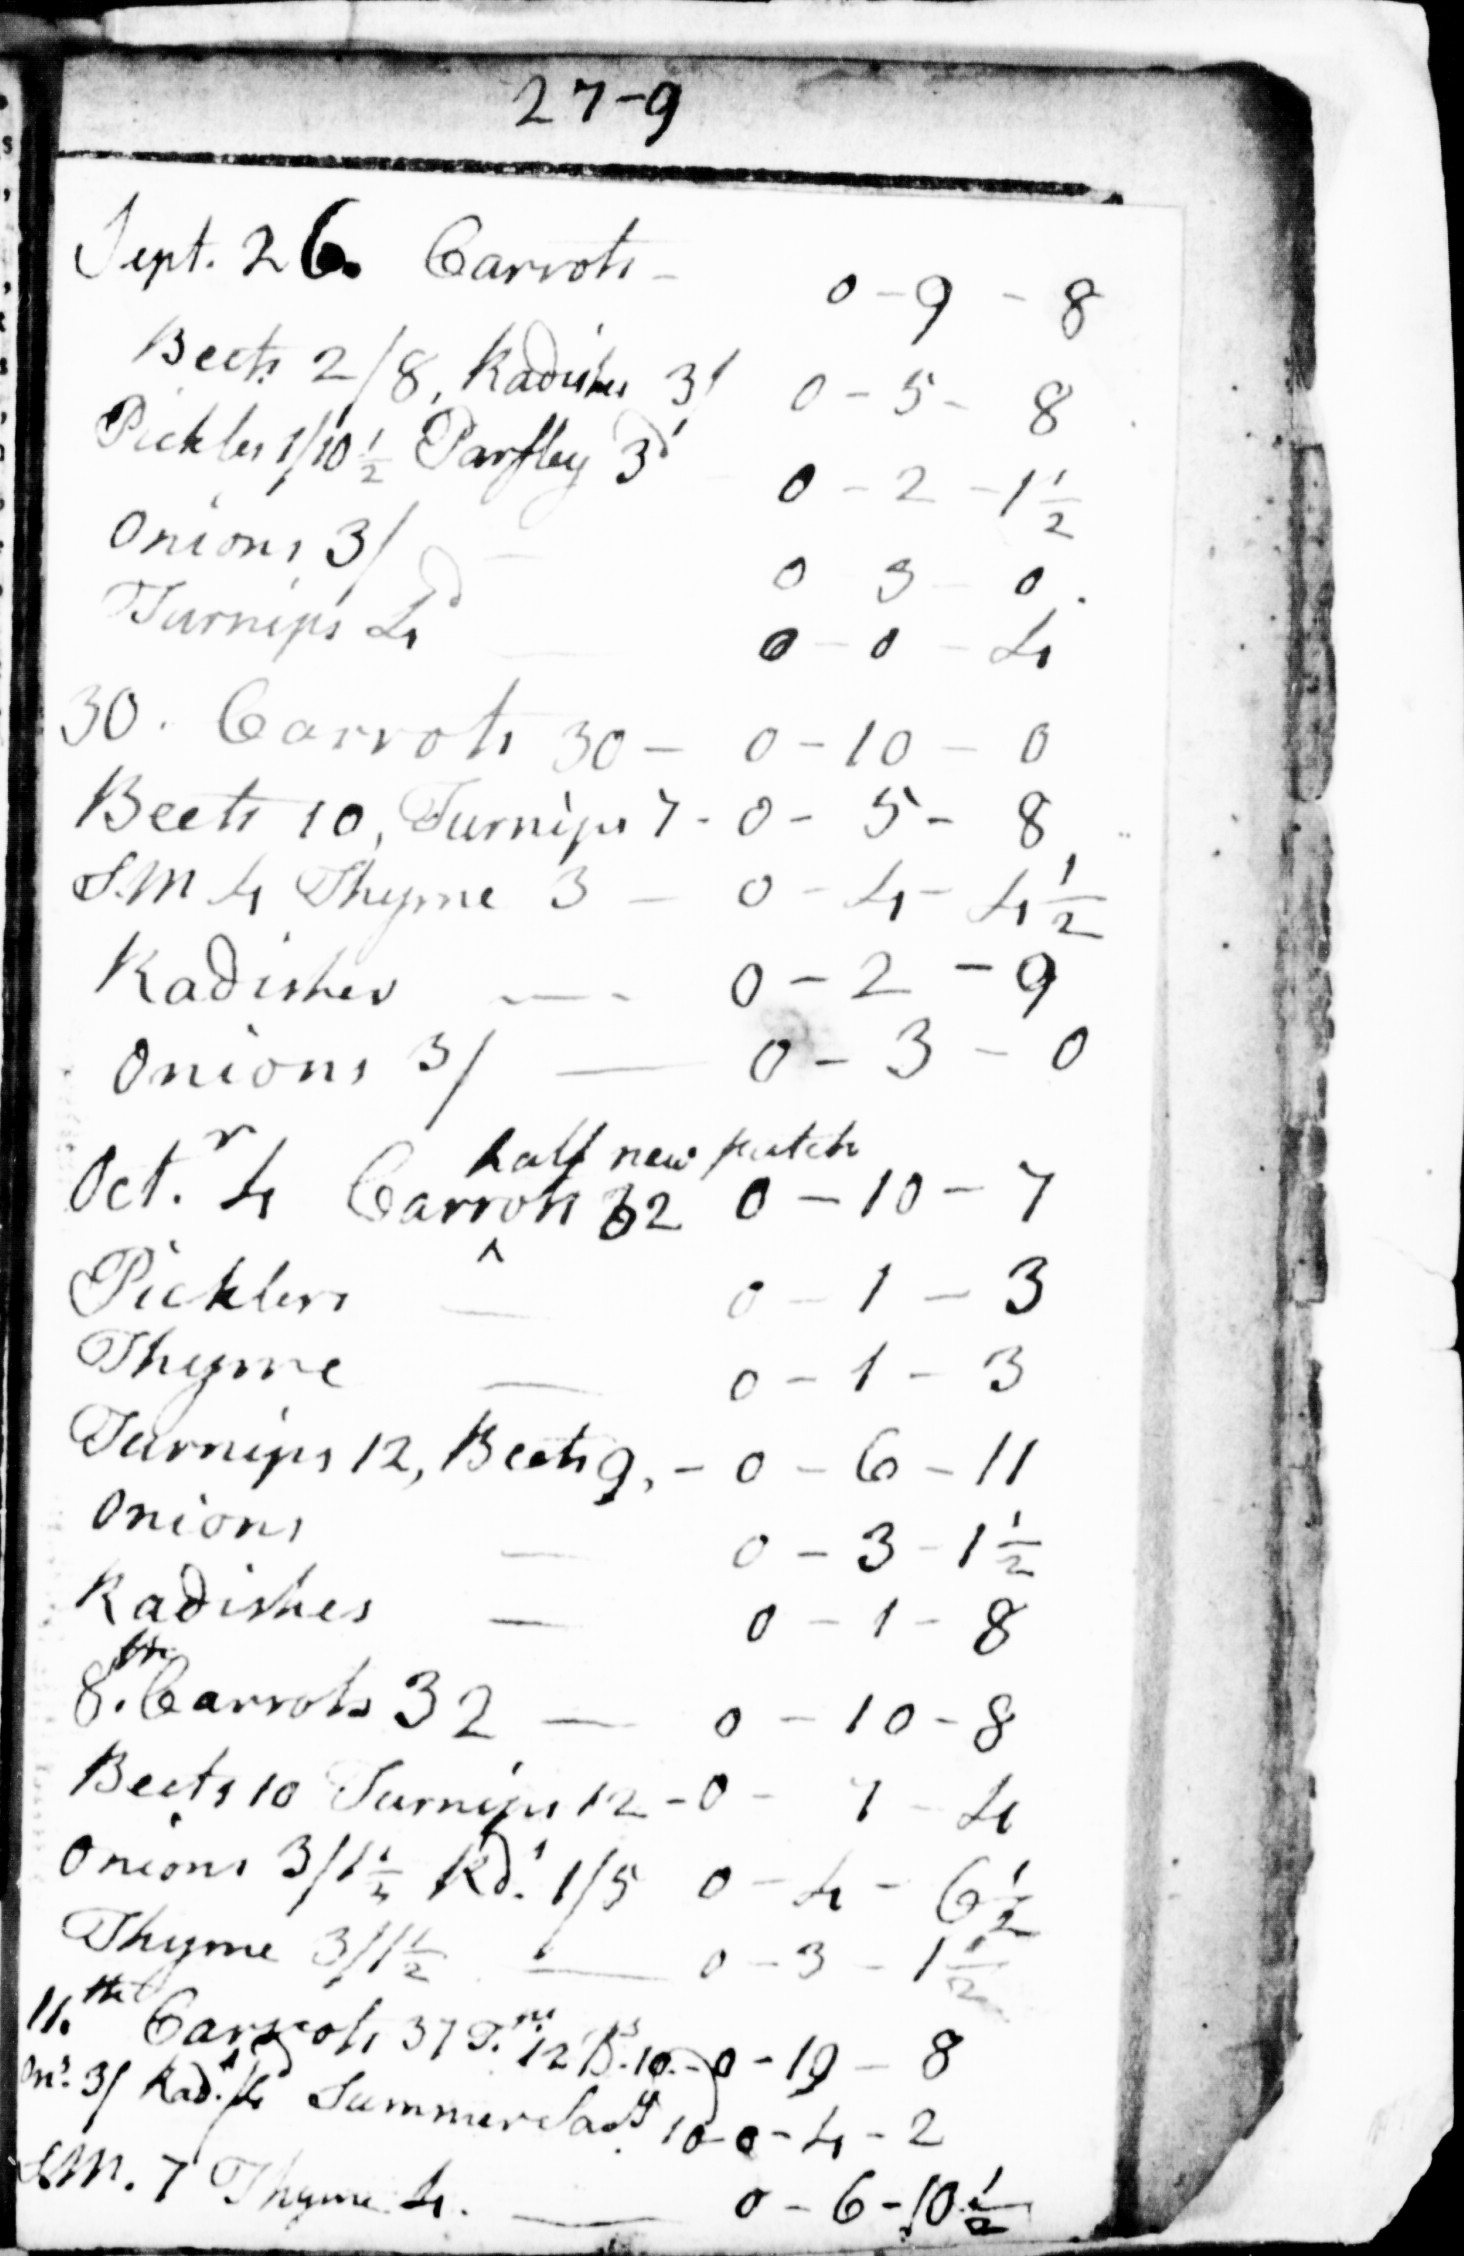 27-9
Sept. 26. Carrots - 0 - 9 - 8
Beets 2/8, Radishes 3/ 0 - 5 - 8
Pickles 1/10 1/2 Parsley 3d 0 - 2 - 1 1/2
Onions 3/ - 0 3 - 0.
Turnips 4d — 0 - 0 - 4
30. Carrots 30 - 0 - 10 - 0
Beets 10, Turnips 7 - 0 - 5 - 8
S.M 4 Thyme 3 - 0 - 4 - 4 1/2
Radishes — 0 - 2 - 9
Onions 3/ — 0 - 3 - 0
half new patch
Octr. 4 Carrots 32 0 - 10 - 7
^
Picklers — 0 - 1 - 3
Thyme — 0 - 1 - 3
Turnips 12, Beets 9, - 0 - 6 - 11
Onions — 0 - 3 - 1 1/2
Radishes — 0 - 1 - 8
8th. Carrots 32 — 0 - 10 - 8
Beets 10 Turnips 12 - 0 - 7 - 4
Onions 3/1 1/2 Rds. 1/5 0 - 4 - 6 1/2
Thyme 3/1 1/2 — 0 - 3 - 1 1/2
11.th Carrots 37 T.ns 12 Bs. 10. - 0 - 19 - 8
Ons. 3/ Rads. /4d Summer Savy 10d 0 - 4 - 2
S.M. 7 Thyme 4. — 0 - 6 - 10 1/2